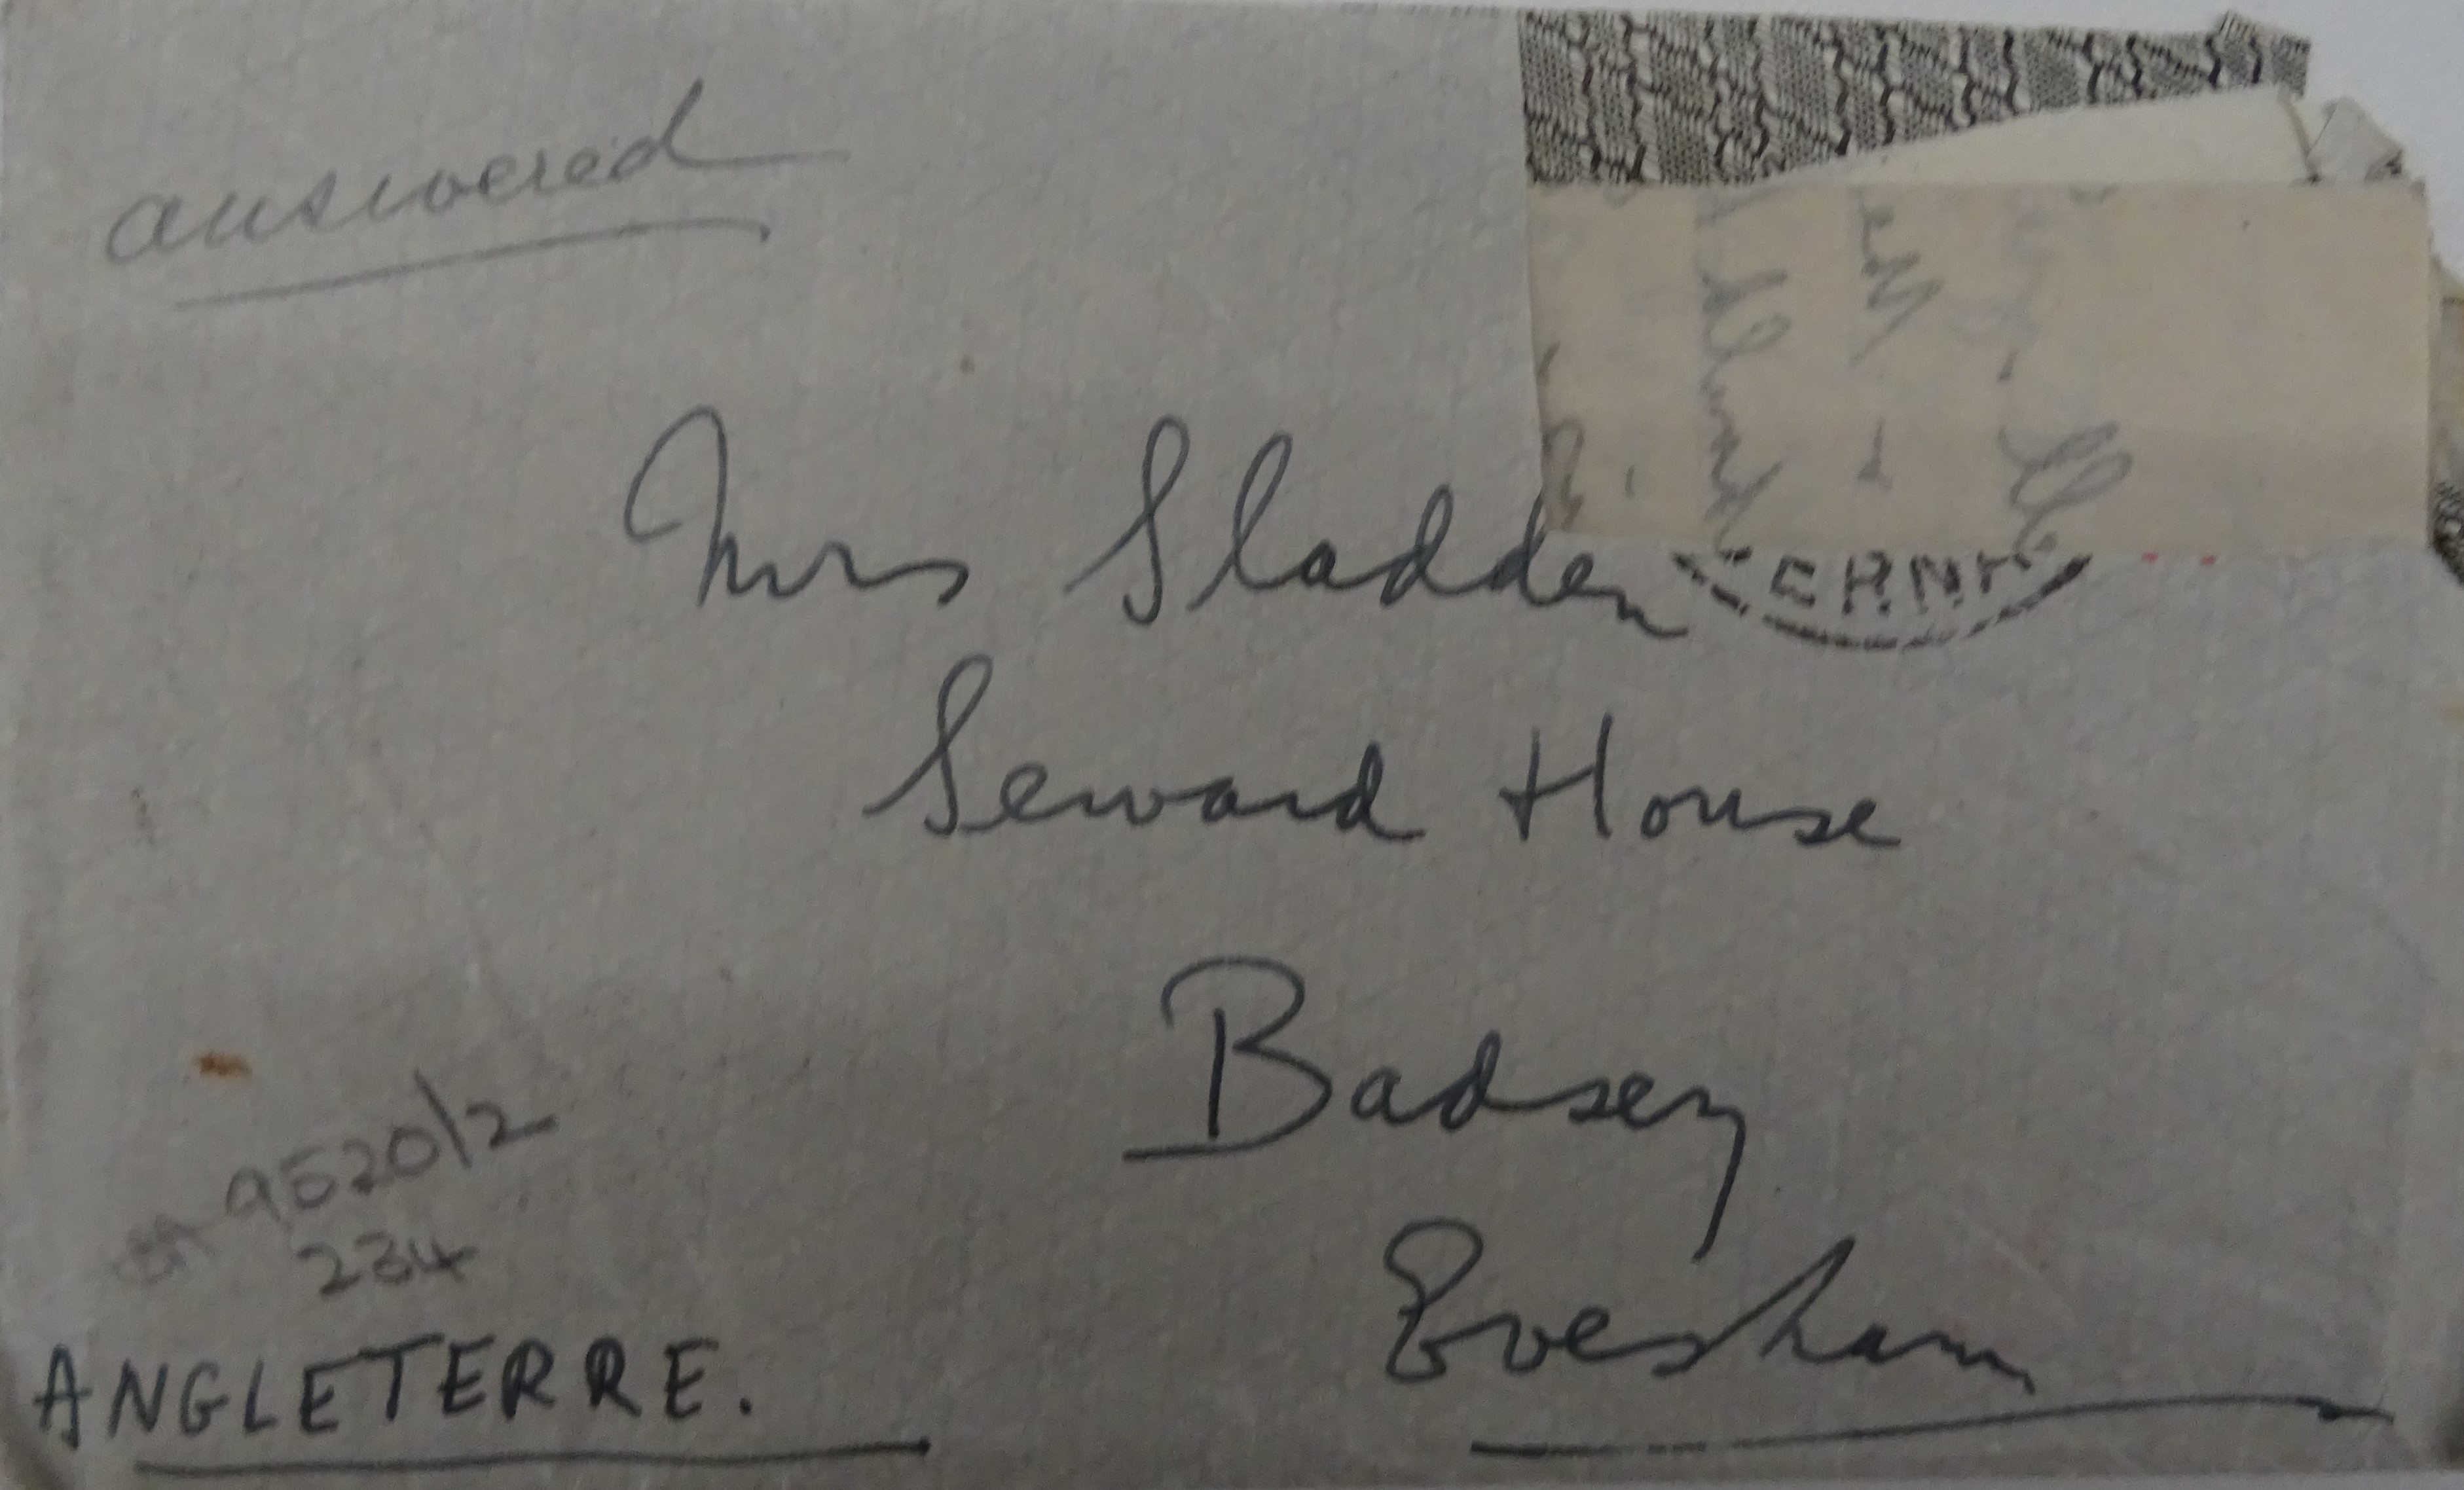 answered
Mrs Sladden
Seward House
Badsey
Evesham
9520/2
234
ANGLETERRE.